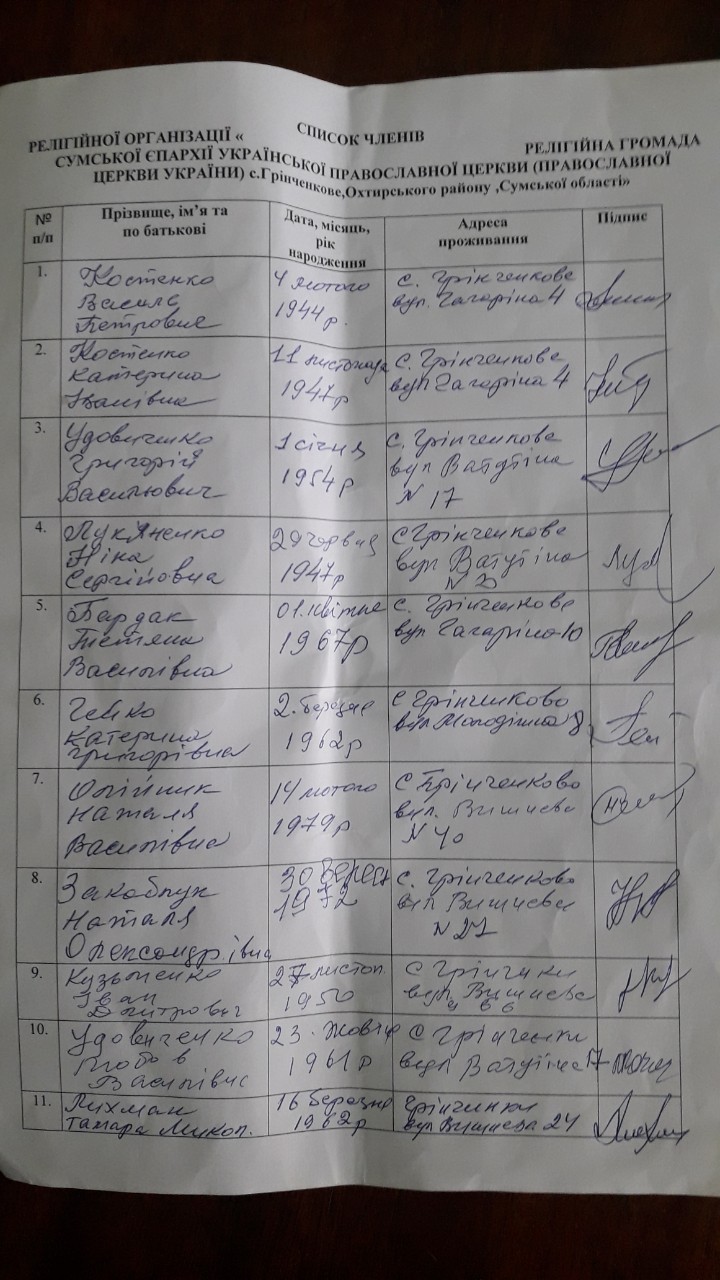 СПИСОК ЧЛЕНІВ
РЕЛІГІЙНОЇ ОРГАНІЗАЦІЇ « РЕЛІГІЙНА ГРОМАДА
СУМСЬКОЇ ЄПАРХІЇ УКРАЇНСЬКОЇ ПРАВОСЛАВНОЇ ЦЕРКВИ (ПРАВОСЛАВНОЇ
ЦЕРКВИ УКРАЇНИ) с.Грінченкове,Охтирського району ,Сумської області»
№ п/п
Прізвище, ім’я та по батькові
Дата, місяць, рік народження
Адреса проживання
Підпис
1.
Костенко
Василь
Петрович
4 лютого
1944 р.
с. Грінченкове
вул. Гагаріна 4
2.
Костенко
Катерина
Іванівна
11 листопада
1947р
с. Грінченкове
вул Гагаріна 4
3.
Удовиченко
Григорій
Васильович
1 січня
1954 р
с. Грінченкове
вул Ватутіна
N 17
4.
Лук'яненко
Ніна
Сергіївна
29 червня
1947р
с Грінченкове
вул Ватутіна
5.
Бардак
Тетяна
Василівна
01. квітня
1967р
с. Грінченкове
вул Гагаріна 10
6.
Гейко
Катерина
Григорівна
2. березня
1962р
с Грінченково
вул Молодіжна 8
7.
Олійник
Наталя
Василівна
14 лютого
1979р
с Грінченково
вул. Вишнева
N 40
8.
Наталя
Олександрівна
30 Верес
1972
с. Грінченково
вул Вишнева
N 27
9.
Кузьменко
Іван
Дмитрович
27 листоп.
1950
с Грінчики
вул. Вишнева
10.
Удовиченко
Любов
Василівна
23. Жовтня
1961р
с Грінченки
вул Ватутіна 17
11.
Лихман
Тамара Микол.
16 березня
1962р
Грінченки
вул Вишнева 24